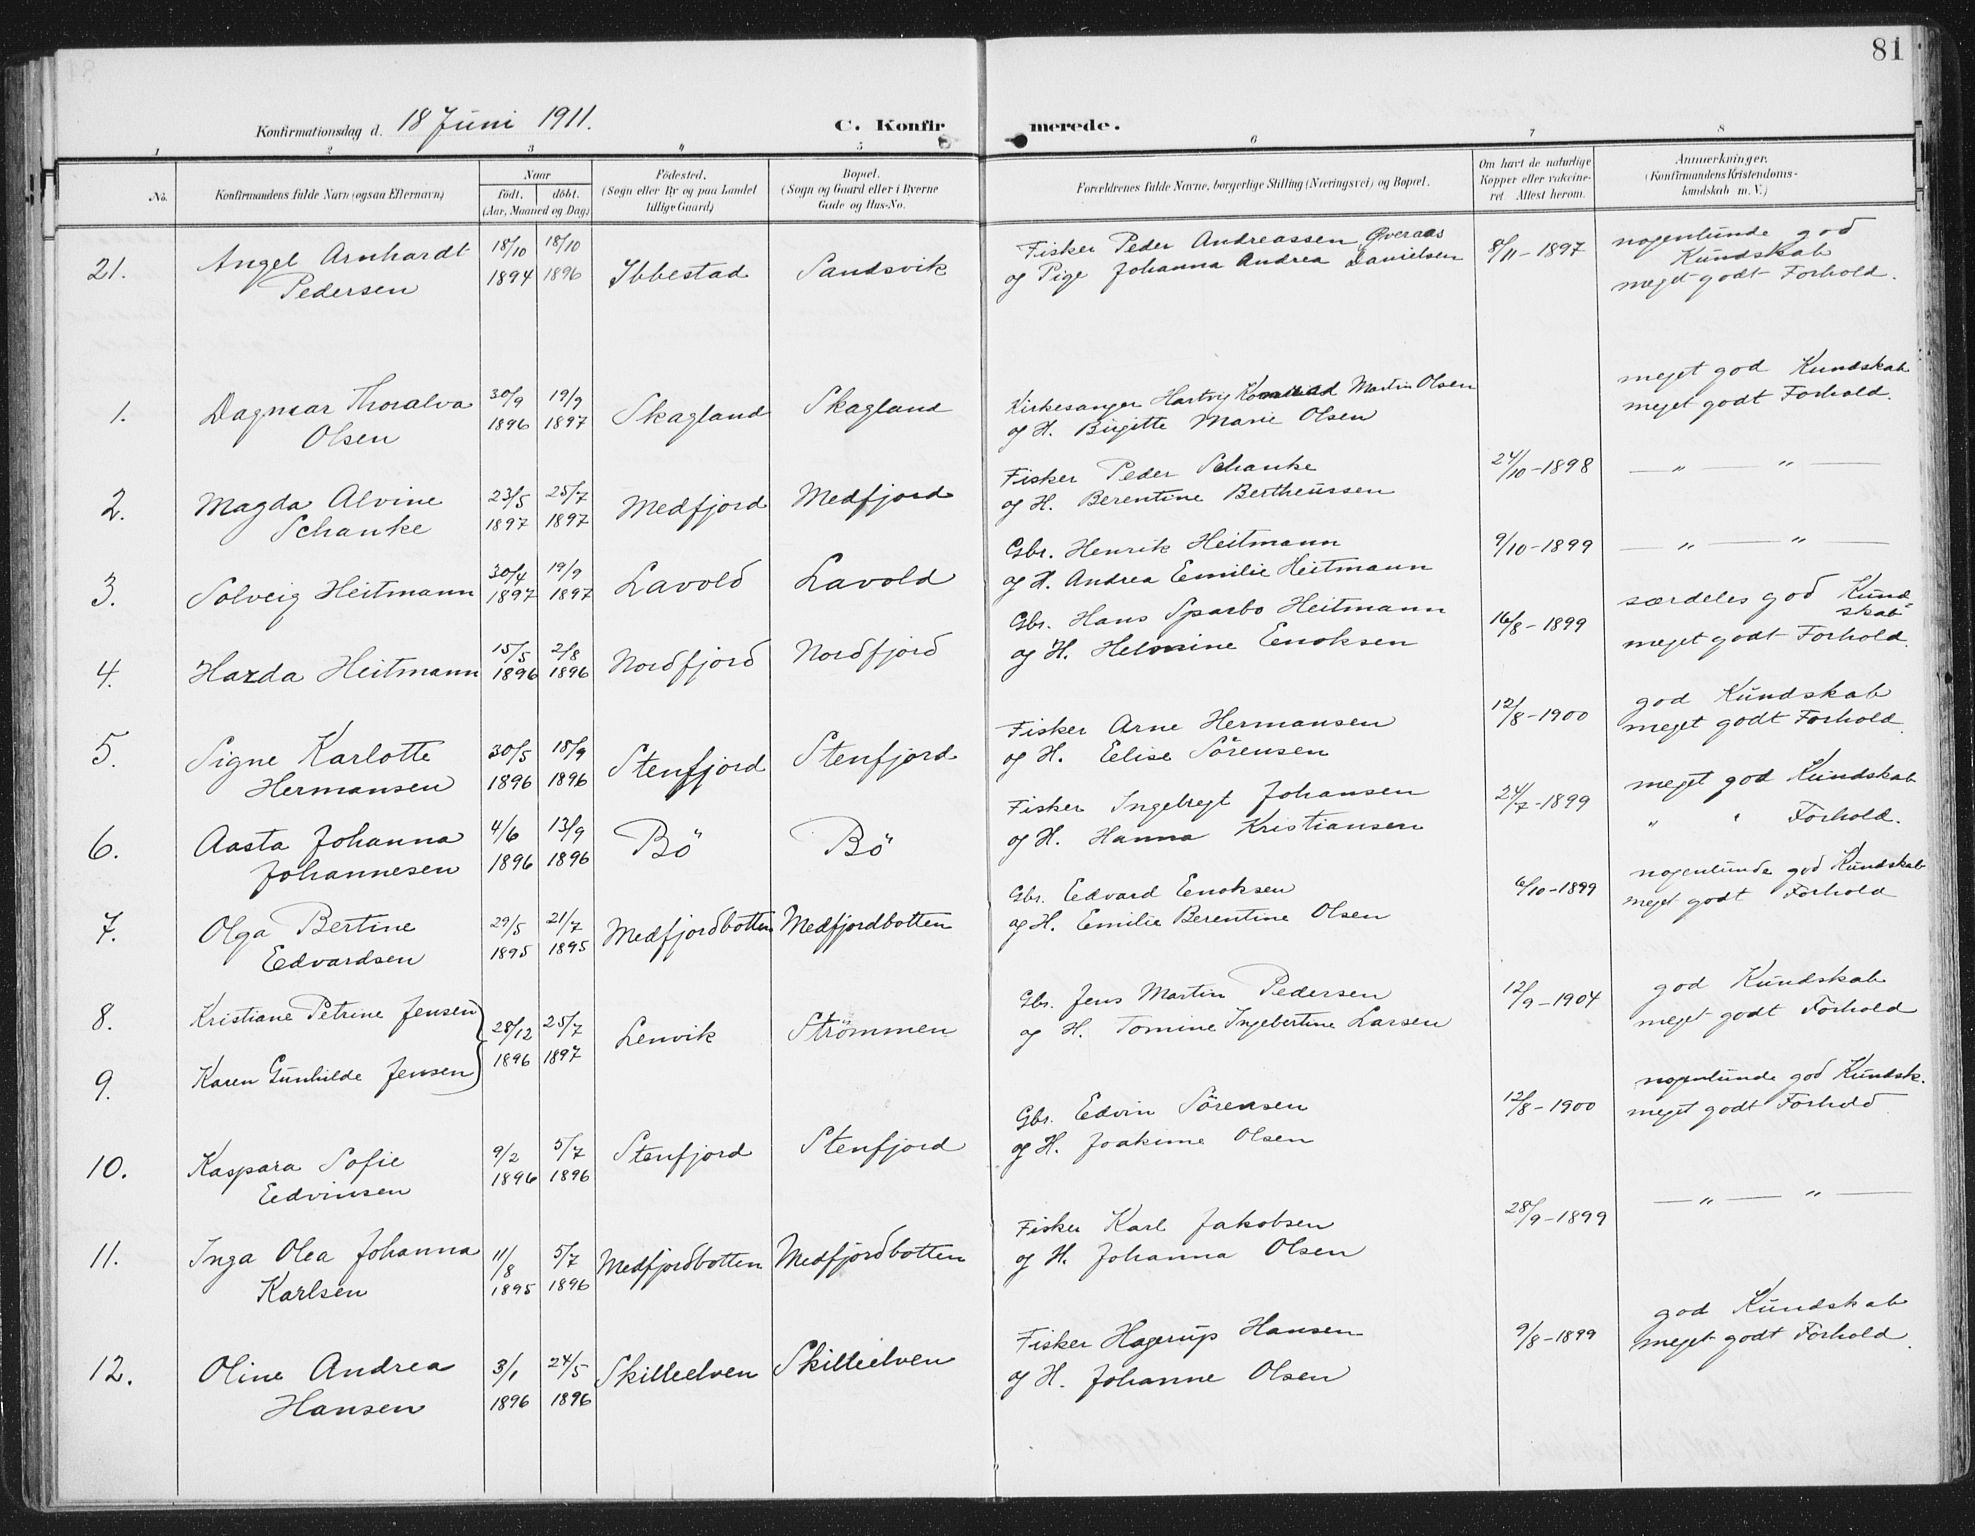 81
Konfirmationsdag d. 18 Juni 1911.
C. Konfirmerede.
1 2 3 4 5 6 7 8
No.
Konfirmandens fulde Navn (ogsaa Efternavn)
Naar
født. døbt.
(Aar, Maaned og Dag)
Fødested.
(Sogn eller By og paa Landet
tillige Gaard)
Bopæl.
(Sogn og Gaard eller i Byerne
Gade og Hus-No.
Forældrenes fulde Navne, borgerlige Stilling (Næringsvei) og Bopæl.
Om havt de naturlige
Kopper eller vaccine-
ret. Attest herom.
Anmærkninger.
(Konfirmandens Kristendoms-
kundskab m. V.)
21. Angel Arnhardt 18/10 18/10 Ibbestad Sandsvik Fisker Peder Andreassen Øveraas 8/11-1897 nogenlunde god
Pedersen 1894 1896 og Pige Johanna Andrea Danielsen Kundskab
meget godt Forhold.
1. Dagmar Thoralva 30/9 19/9 Skagland Skagland Kirkesanger Hartvig Konrad Martin Olsen meget god Kundskab
Olsen 1896 1897 og H. Birgitte Marie Olsen meget godt Forhold.
2. Magda Alvine 23/5 25/7 Medfjord Medfjord Fisker Peder Schanke 24/10-1898 — " — " —
Schanke 1897 1897 og H. Berentine Bertheussen
3. Solveig Heitmann 30/4 19/9 Lavold Lavold Gbr. Henrik Heitmann 9/10-1899 — " — " —
1897 1897 og H. Andrea Emilie Heitmann
4. Hazda Heitmann 15/5 2/8 Nordfjord Nordfjord Gbr. Hans Sparbo Heitmann 16/8-1899 særdeles god Kund-
skab
1896 1896 og H. Helmine Enoksen meget godt Forhold.
5. Signe Karlotte 30/5 18/9 Stenfjord Stenfjord Fisker Arne Hermansen 12/8-1900 god Kundskab
Hermansen 1896 1896 og H. Elise Sörensen meget godt Forhold
6. Aasta Johanna 4/6 13/9 Bö Bö Fisker Ingebregt Johansen 24/7-1899 meget god Kundskab
Johannesen 1896 1896 og H. Hanna Kristiansen " " Forhold.
7. Olga Bertine 29/5 21/7 Medfjordbotten Medfjordbotten Gbr. Edvard Enoksen 6/10-1899 nogenlunde god Kundskab
Edvardsen 1895 1895 og H. Emilie Berentine Olsen meget godt Forhold
8. Kristiane Petrine Jensen 28/12 25/7 Lenvik Strömmen Gbr. Jens Martin Pedersen 12/9-1904 god Kundskab
1896 1897 og H. Tomine Ingebertine Larsen meget godt Forhold
9. Karen Gunhilde Jensen
10. Kaspara Sofie 9/2 5/7 Stenfjord Stenfjord Gbr. Edvin Sörensen 12/8-1900 nogenlunde god Kundsk.
Edvinsen 1896 1896 og H. Joakime Olsen meget godt Forhold
11. Inga Olea Johanna 11/8 5/7 Medfjordbotten Medfjordbotten Fisker Karl Jakobsen 28/9-1899 — " — " —
Karlsen 1895 1896 og H. Johanna Olsen
12. Oline Andrea 3/1 24/5 Skilleelven Skilleelven Fisker Hagerup Hansen 9/8-1899 god Kundskab
Hansen 1896 1896 og H. Johanne Olsen meget godt Forhold.